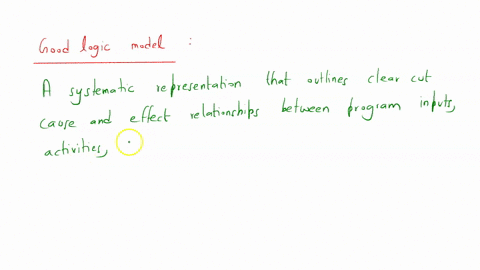 Good logic model :
A systematic representation that outlines clear cut
cause and effect relationships between program inputs,
activities,